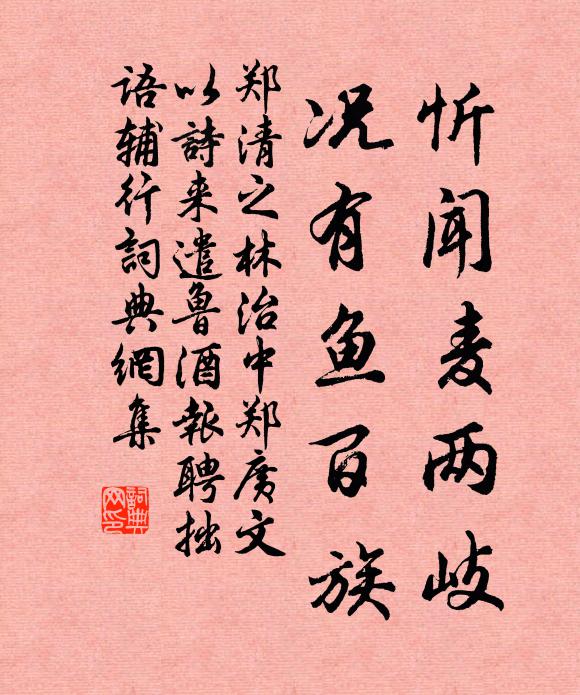 忻闻麦两岐
况有鱼百族
郑清之林治中郑广文
以詩来遣魯酒報聘拙
语辅行詞典網集
詞典
网印